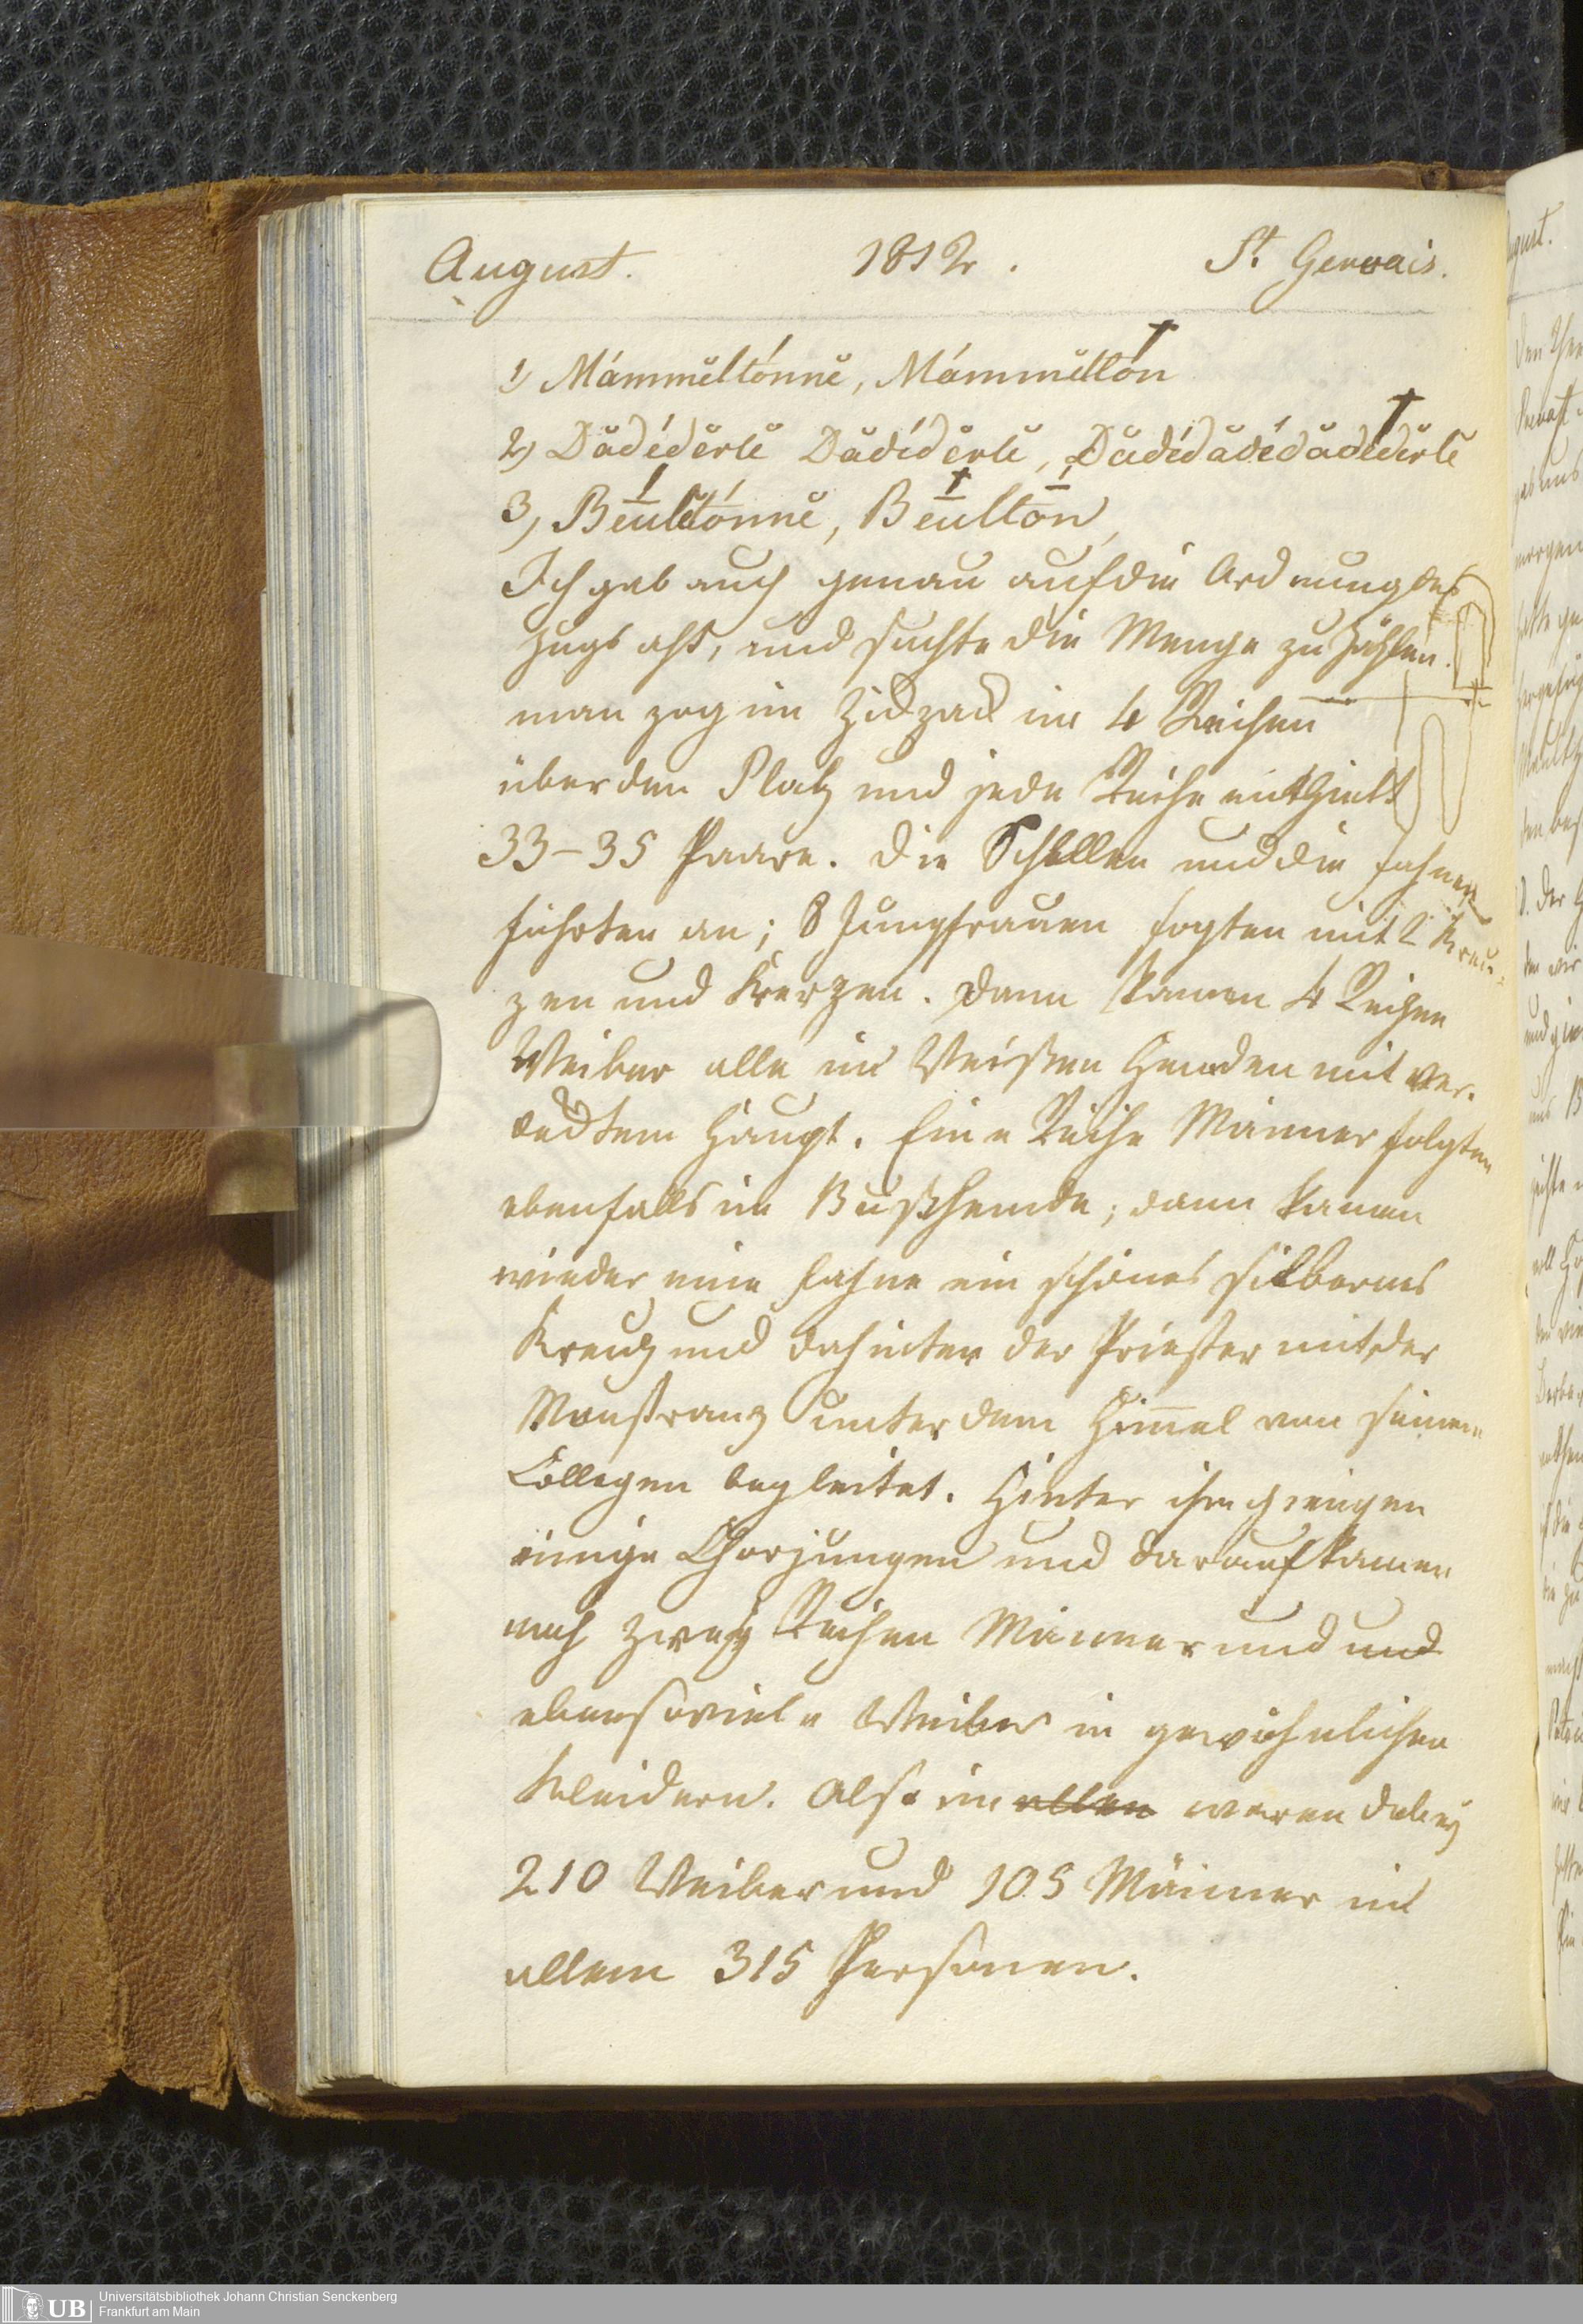 August. 1812. St. Gervais.
1) Mámmĕltónnĕ, Mámmĕltón
2) Dădédĕrlĕ Dădédĕrlĕ, Dădédădédădédĕrlĕ
3) Beulĕtónnĕ, Beultón
Ich gab auch genau auf die Ordnung des
Zugs acht, und suchte die Menge zu zählen.
man zog im Zickzack in 4 Reihen
über den Platz und jede Reihe enthielt
33–35 Paare. Die Schellen und die Fahnen
führten an; 8 Jungfrauen fogten mit 2 Kreu-
zen und Kerzen. Dann kamen 4 Reihen
Weiber alle in Weißen Hemden mit ver-
decktem Haupt. Eine Reihe Männer folgten
ebenfalls im Bußhemde; dann kamen
wieder eine Fahne ein schönes silbernes
Kreuz und dahinter der Priester mit der
Monstranz unter dem Himmel von seinen
Collegen begleitet. Hinter ihm giengen
einige Chorjungen und darauf kamen
noch zwey Reihen Männer und und
ebensoviele Weiber in gewöhnlichen
Kleidern. Also im allen waren dabey
210 Weiber und 105 Männer in
allem 315 Personen.
UB Universitätsbibliothek Johann Christian Senckenberg
Frankfurt am Main